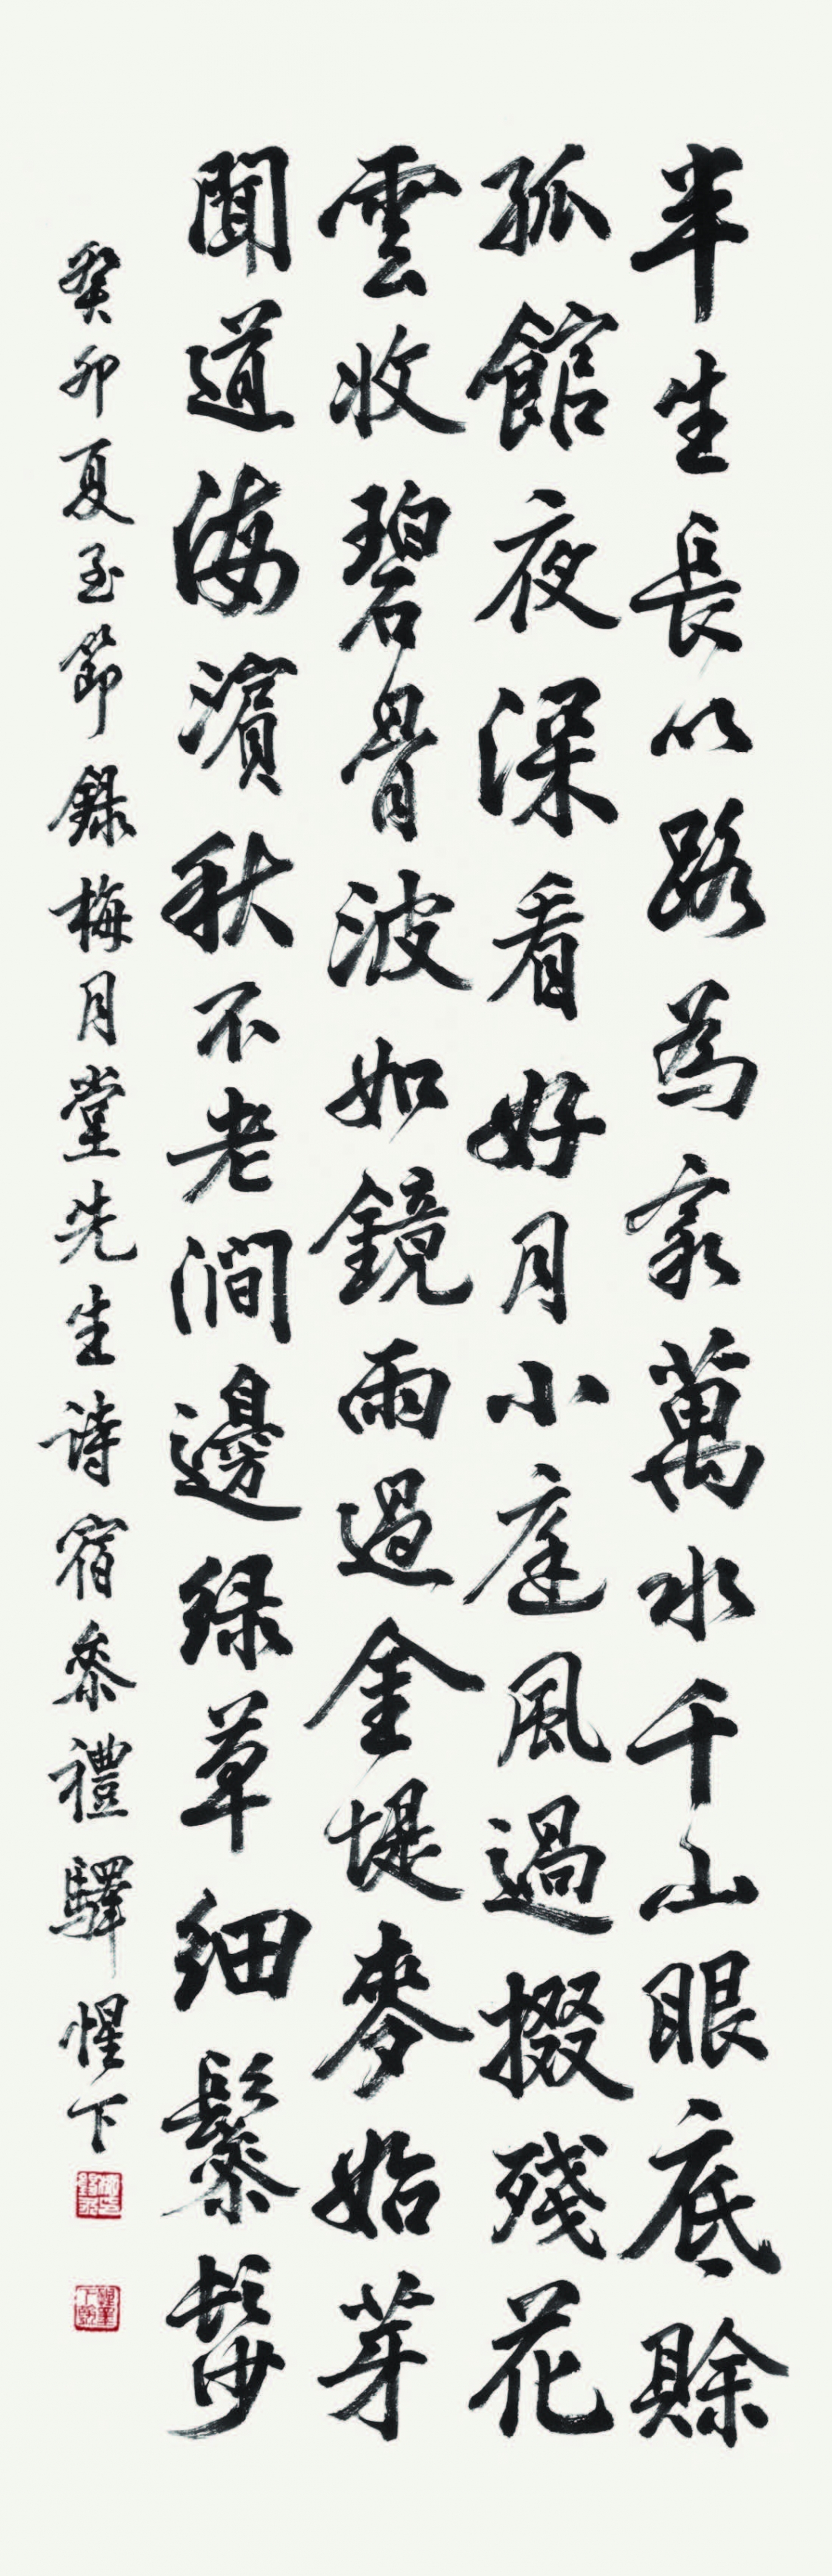 半生長以路為家萬水千山眼底賒
孤館夜深看好月小庭風過掇殘花
雲收碧骨波如鏡雨過金堤麥始芽
聞道海濱秋不老澗邊綠草細鬖髿
癸卯夏至節錄梅月堂先生詩宿參禮驛惺下